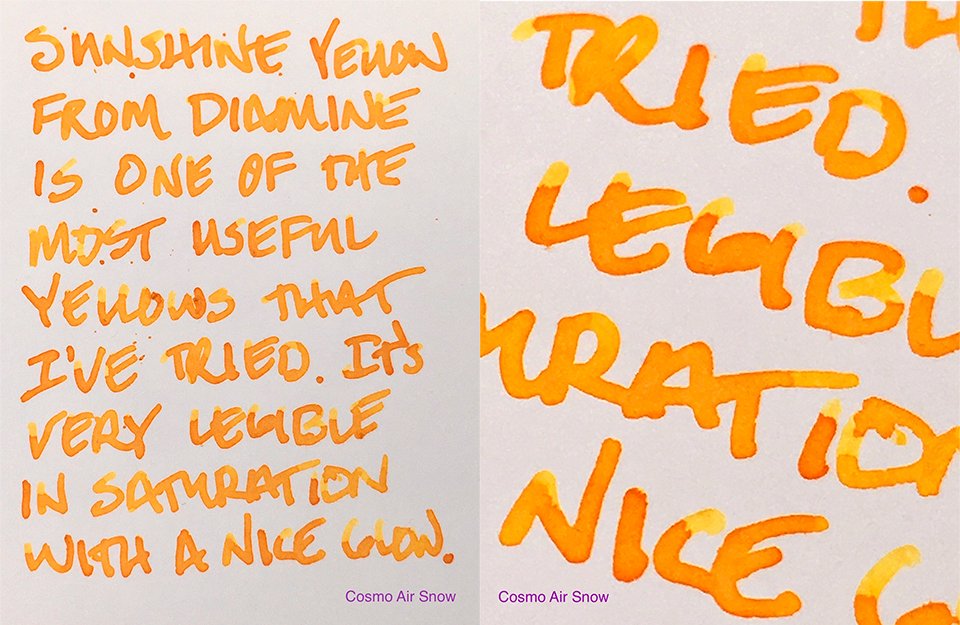 SUNSHINE YELLOW
FROM DIAMINE
IS ONE OF THE
MOST USEFUL
YELLOWS THAT
I'VE TRIED. It's
VERY LEGIBLE
IN SATURATION
WITH A NICE GLOW.
Cosmo Air Snow
TRIED.
LEGIBL
URATION
NICE G
Cosmo Air Snow